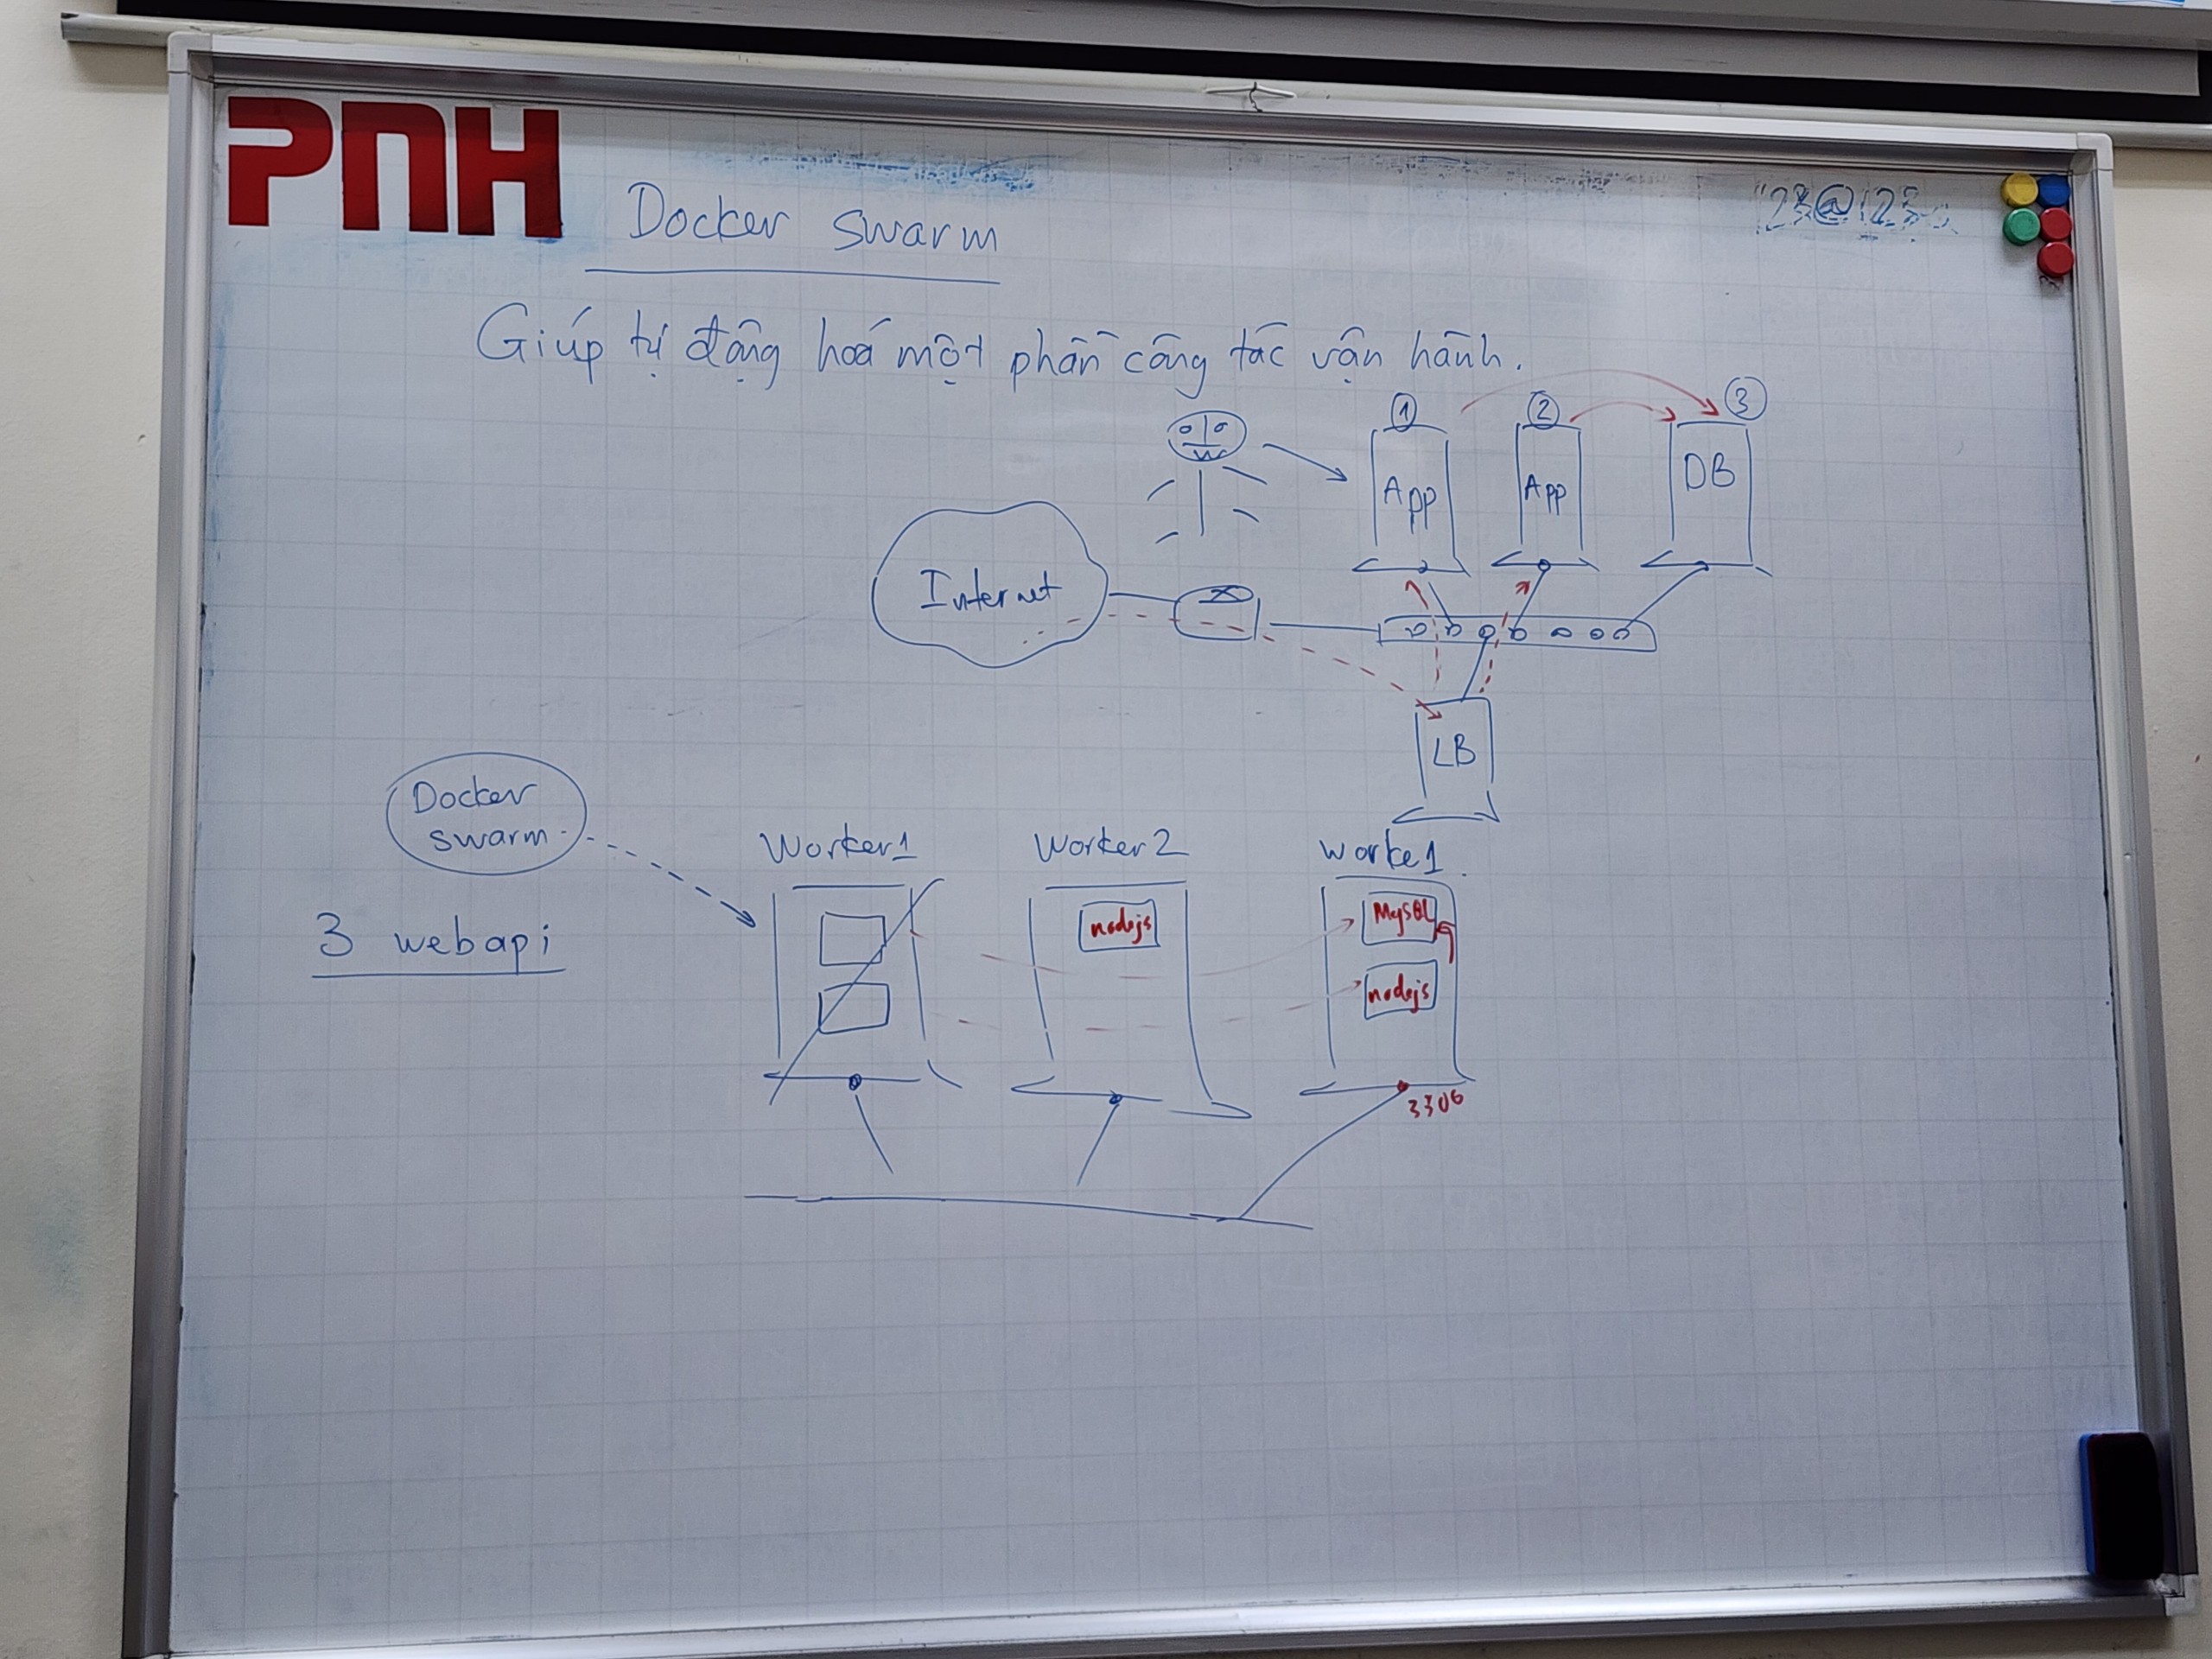 PNH
Docker swarm
Giúp tự động hoá một phần công tác vận hành.
1 2 3
App App DB
Internet
LB
Docker
swarm
Worker1 Worker2 worke1
3 webapi
nodejs MySQL
nodejs
3306